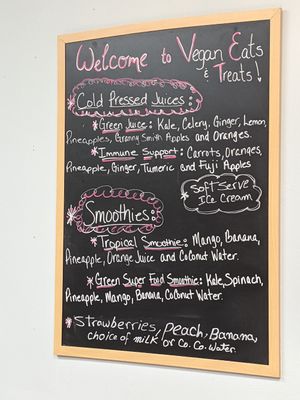 Welcome to Vegan Eats
& Treats!
* Cold Pressed Juices:
* Green Juice: Kale, Celery, Ginger, Lemon,
Pineapples, Granny Smith Apples and Oranges.
* Immune Support: Carrots, Oranges,
Pineapple, Ginger, Tumeric and Fuji Apples
Soft Serve
Ice Cream
* Smoothies:
* Tropical Smoothie: Mango, Banana,
Pineapple, Orange Juice and Coconut Water.
* Green Super Food Smoothie: Kale, Spinach,
Pineapple, Mango, Banana, Coconut Water.
* Strawberries, Peach, Banana,
choice of milk or Co. Co. Water.